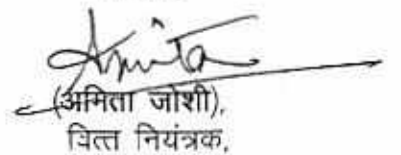 Amita
(अमिता जोशी),
वित्त नियंत्रक,